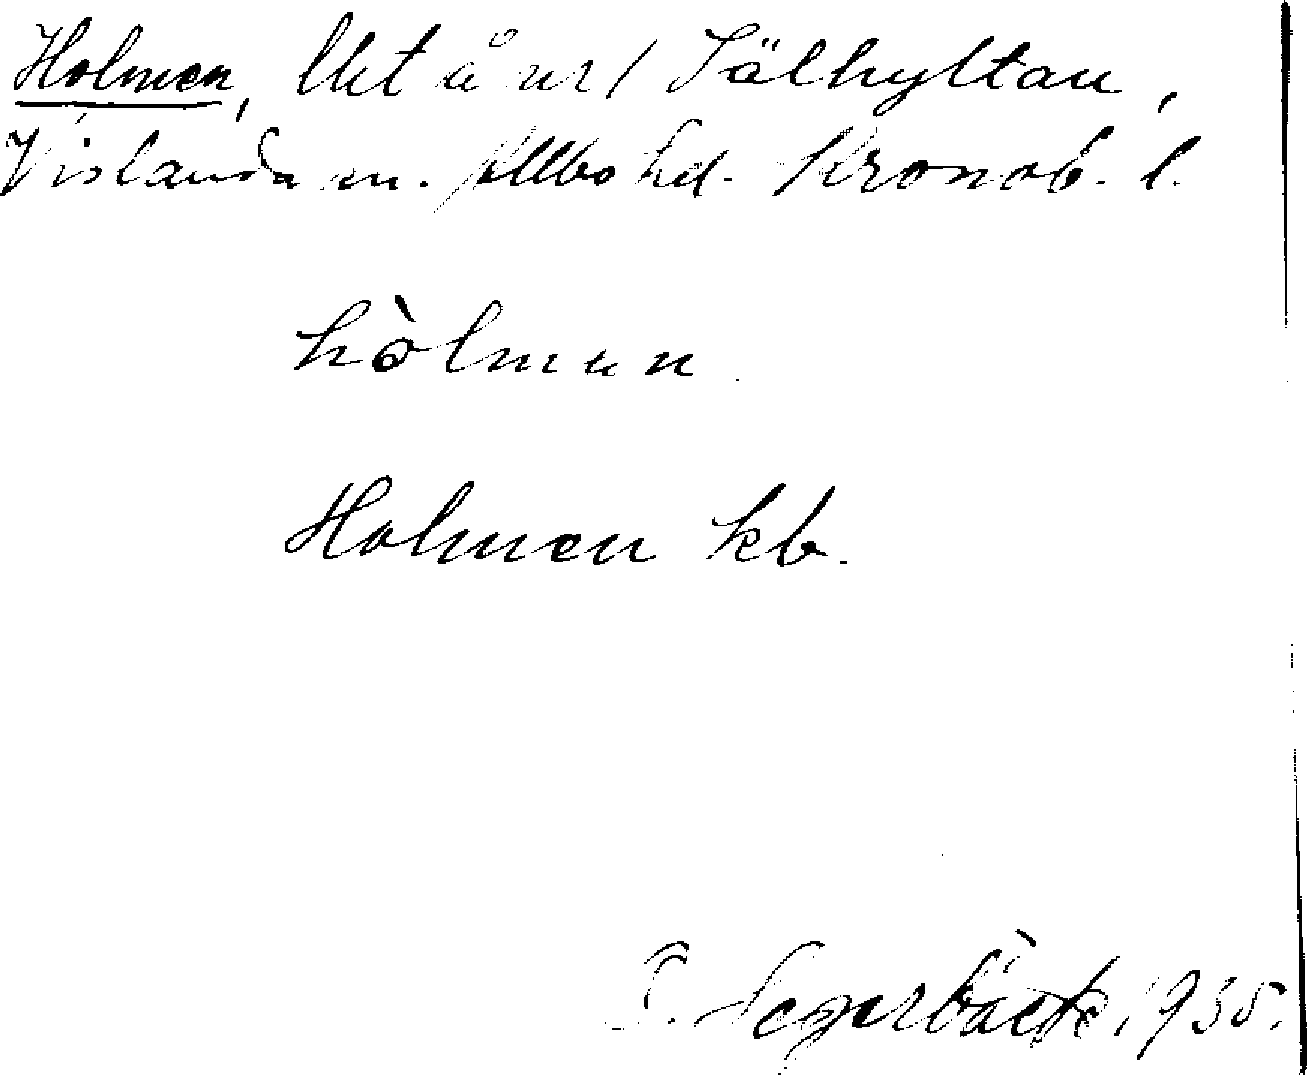 Holmen, lht å nr 1 Sälhyltan,
Vislanda sn. Allbo hd. Kronob. l.
hòlmen
Holmen kb.
Segerbäck, 1935.